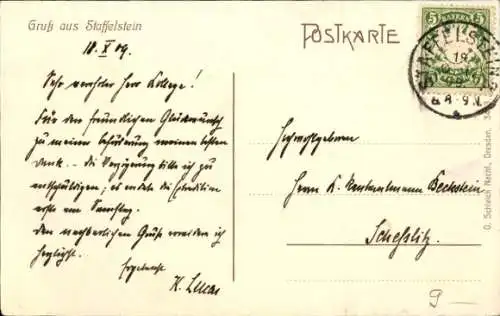 Gruß aus Staffelstein
18. X 09.
Sehr verehrter Herr Kollege!
Für den freundlichen Glückwunsch
zu meiner Beförderung meinen besten
Dank. – Die Verzögerung bitte ich zu
entschuldigen; es endete die
erst am Samstag.
Den nachbarlichen Gruß erwidere ich
herzlichst.
Ergebenst
K. Lucas
POSTKARTE
5 BAYERN 5
STAFFELSTEIN
19
8-9 N.
Hochwohlgeboren
Herrn K. Rentamtmann Beckstein
Scheßlitz.
9
Dresden.